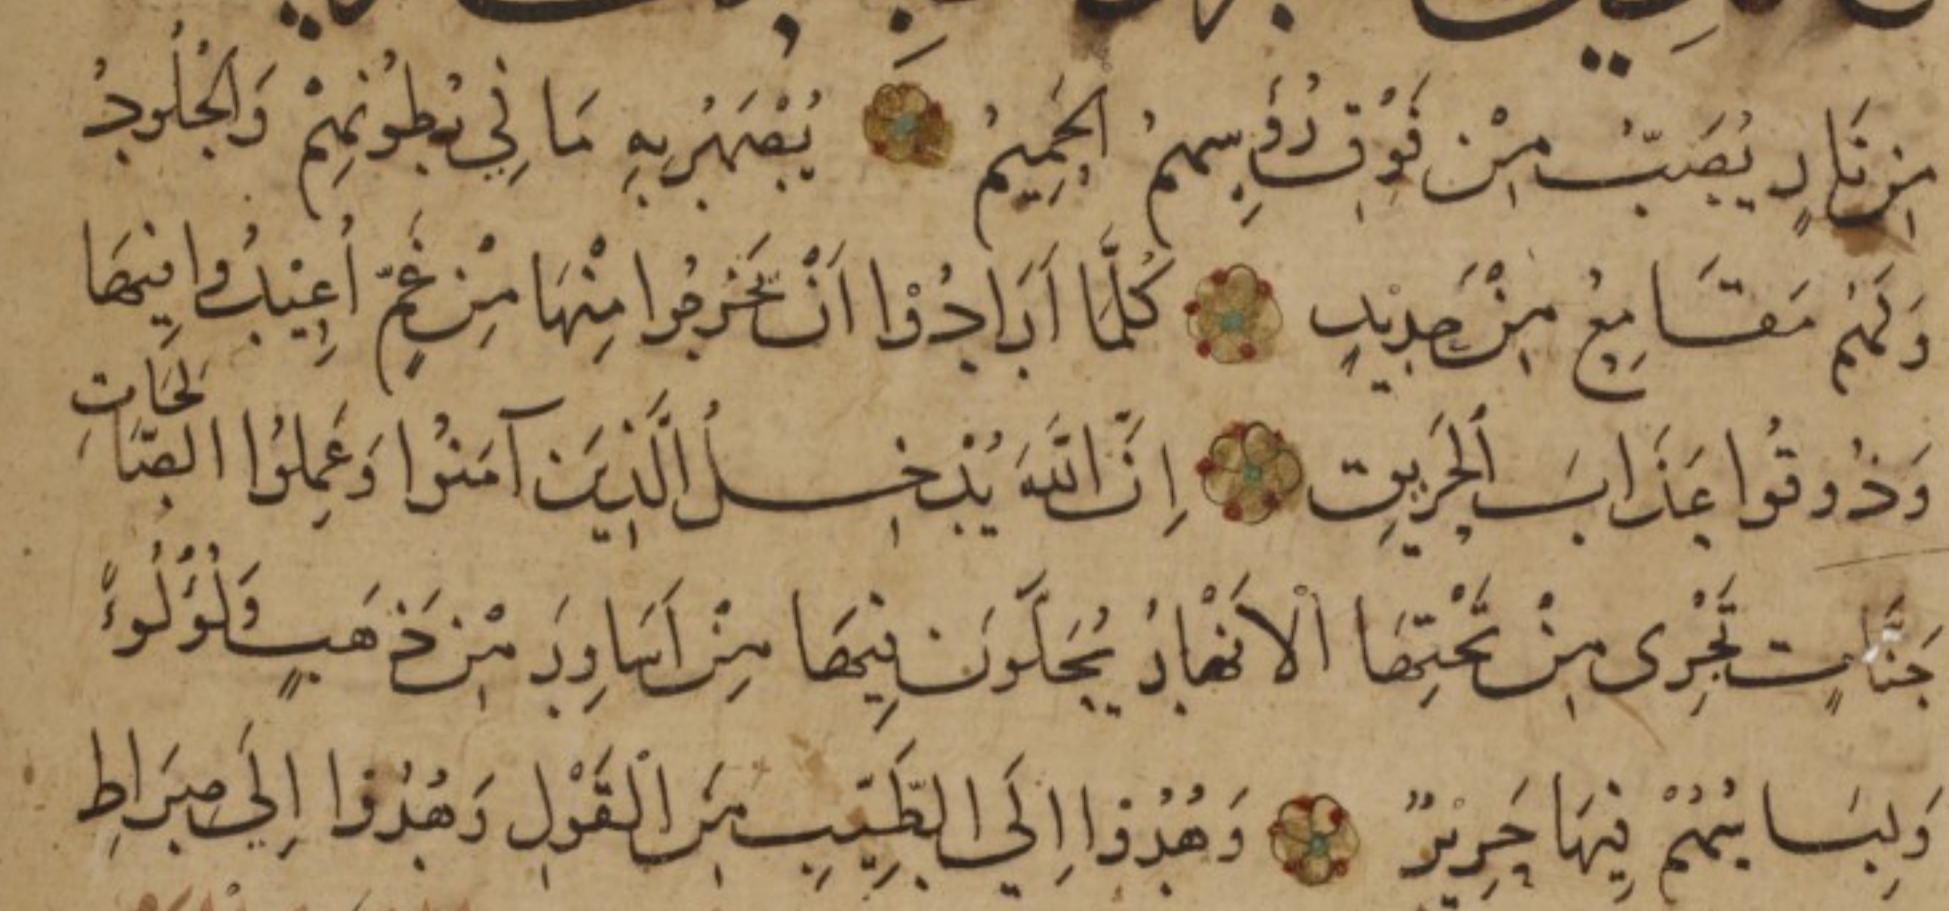 مِن نَارٍ يُصَبُّ مِنْ فَوْقِ رُؤُسِهِمُ الْحَمِيمُ يُصْهَرُ بِهِ مَا فِي بُطُونِهِمْ وَالْجُلُودُ
وَلَهُمْ مَقَامِعُ مِنْ حَدِيدٍ كُلَّمَا اَرَادُوْا اَنْ يَخْرُجُوا مِنْهَا مِنْ غَمٍّ اُعِيْدُوا فِيهَا
وَذُوقُوا عَذَابَ الْحَرِيقِ اِنَّ اللَّهَ يُدْخِلُ الَّذِينَ آمَنُوا وَعَمِلُوا الصَّالِحَاتِ
جَنَّاتٍ تَجْرِى مِنْ تَحْتِهَا الْاَنْهَارُ يُحَلَّوْنَ فِيهَا مِنْ اَسَاوِرَ مِنْ ذَهَبٍ وَلُؤْلُوءً
وَلِبَاسُهُمْ فِيهَا حَرِيْرٌ وَهُدُوا اِلَى الطَّيِّبِ مِنَ الْقَوْلِ وَهُدُوا اِلَى صِرَاطِ